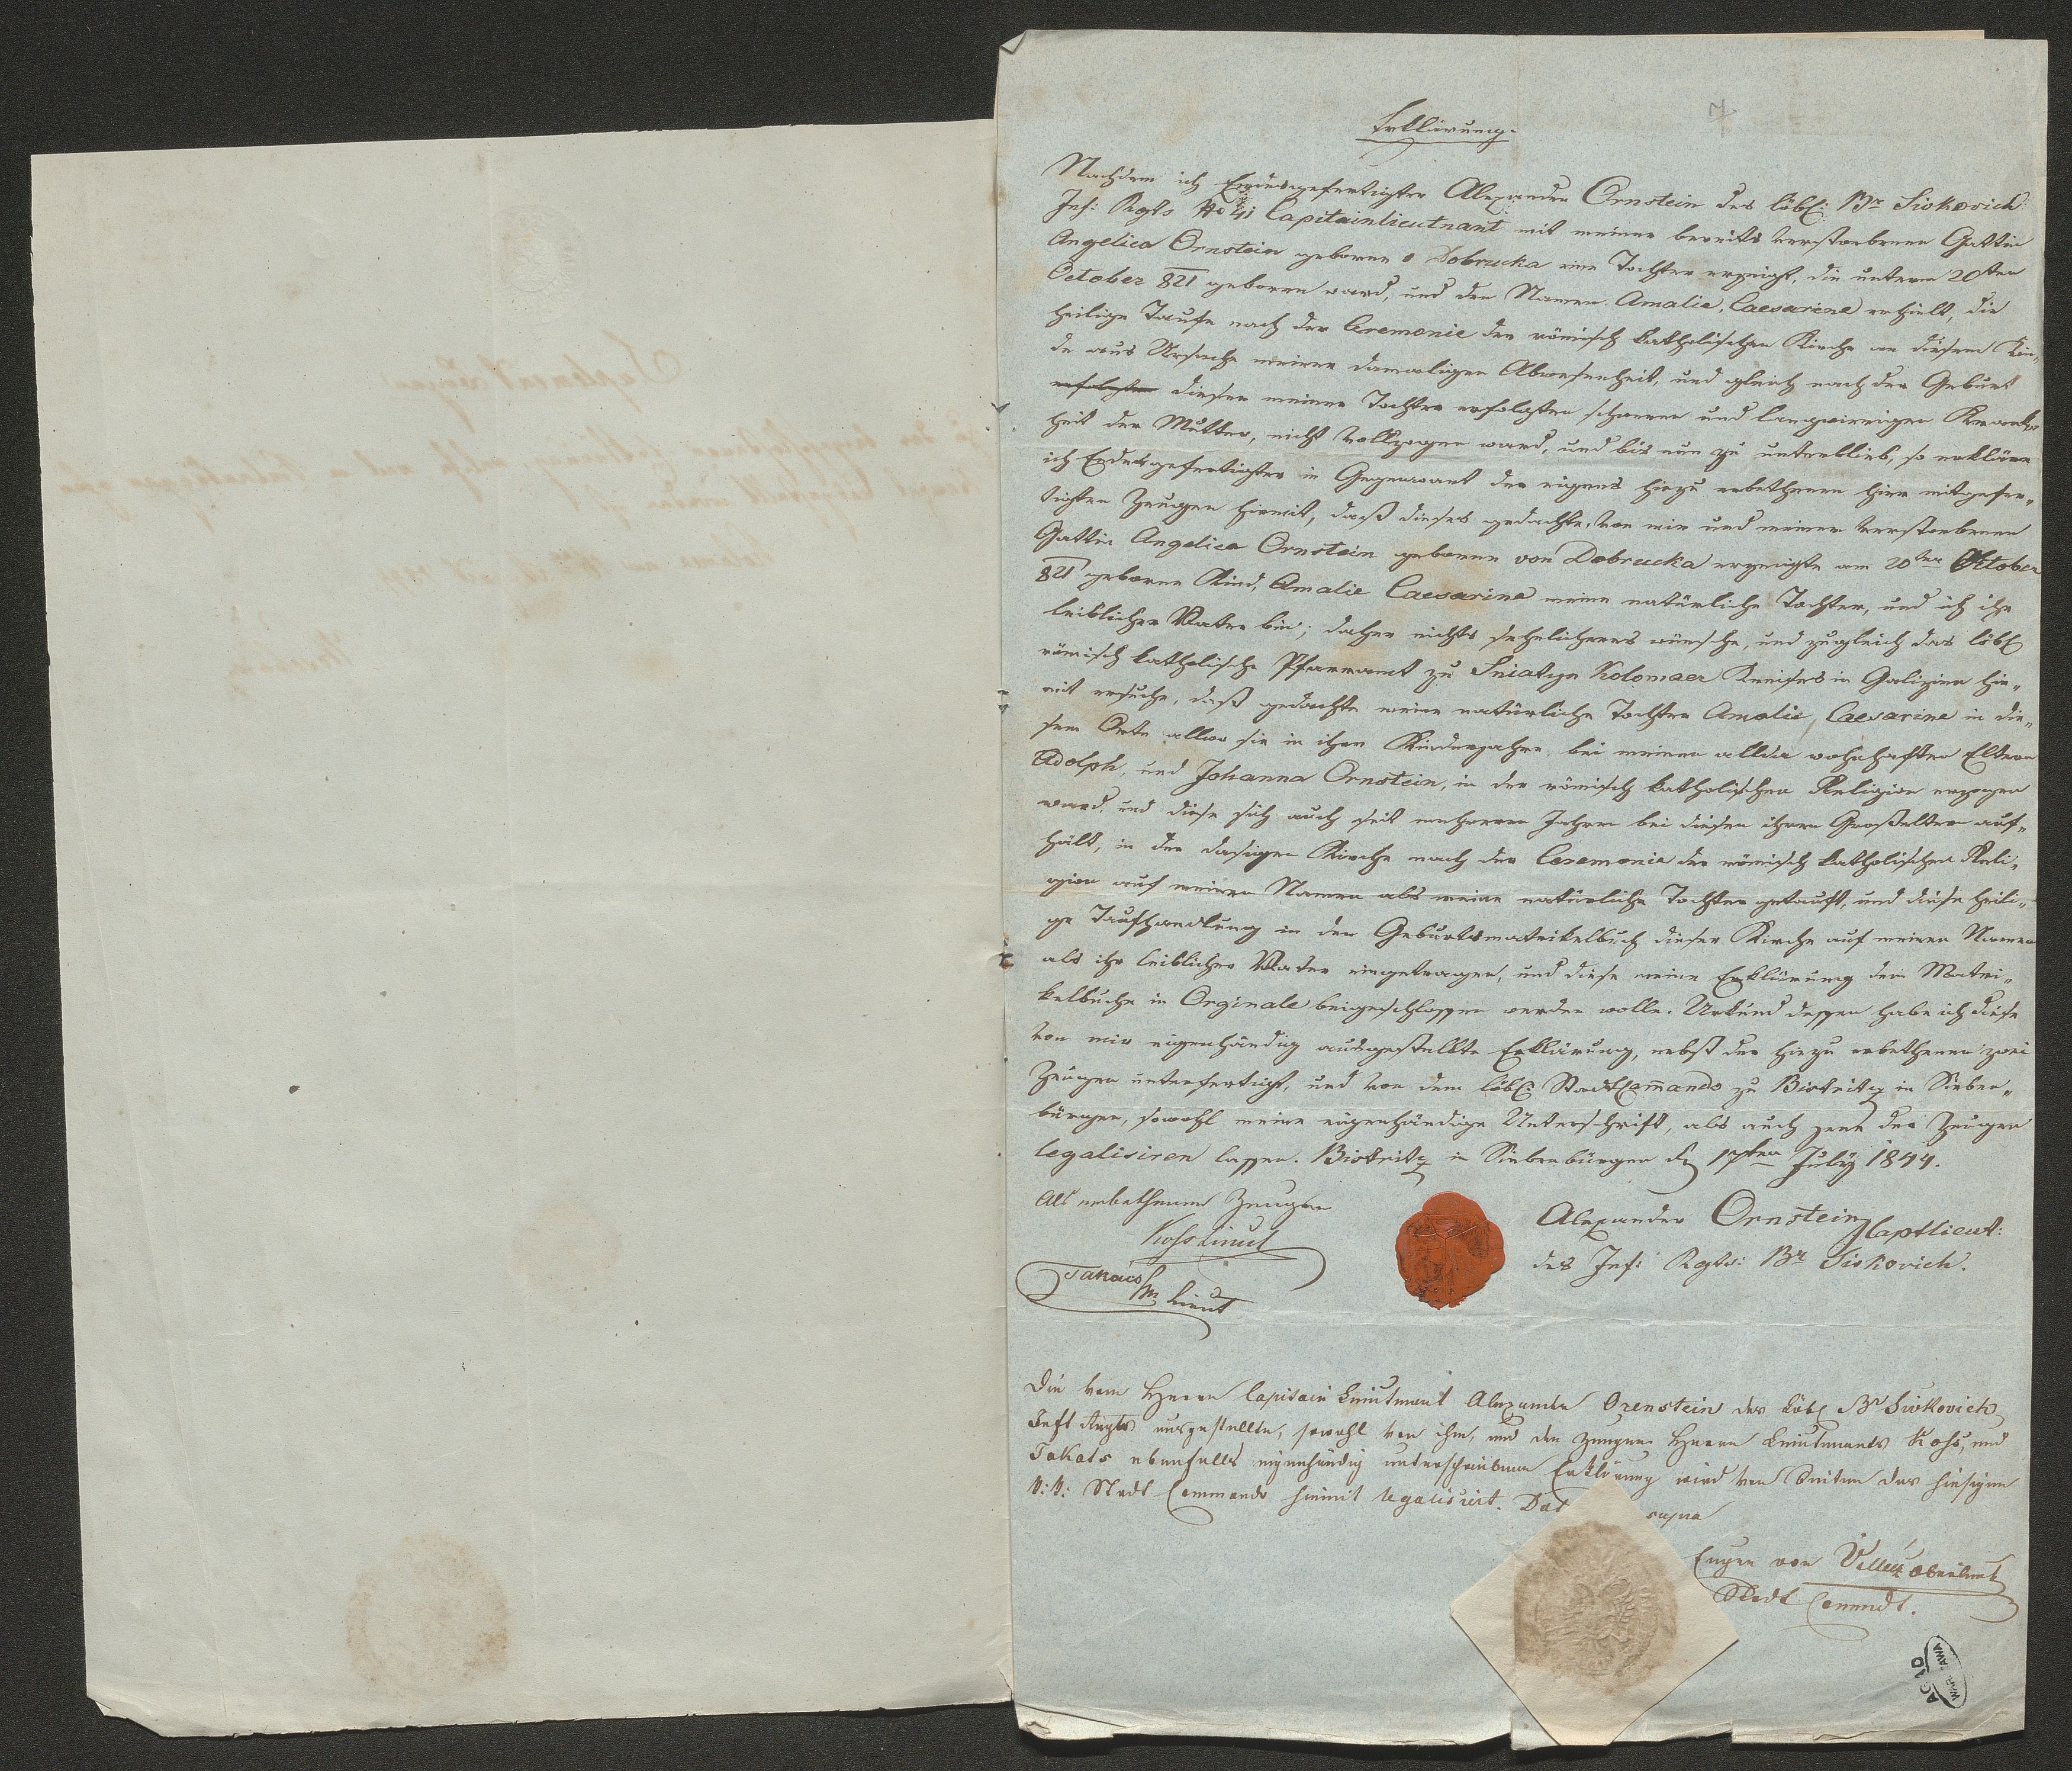 Erklärung.
Nachdem ich Endesgefertigter Alexander Ornstein des löbl: Br Sivkovich
Inf: Rgts No 41 Capitainlieutnant mit meiner bereits verstorbenen Gattin
Angelica Ornstein geborne v Dobrucka eine Tochter erzeigt, die unterm 20ten
October 821 geboren ward, und den Namen Amalie, Caesarine erhielt, die
heilige Taufe nach der Ceremonie der römisch katholischen Kirche an diesem Kin„
de aus Ursache meiner damaligen Abwesenheit, und gleich nach der Geburt
erfolgten dieser meiner Tochter erfolgten schweren und langwierigen Krank„
heit der Mutter, nicht vollzogen ward, und bis nun zu unterblieb, so erkläre
ich Endesgefertigter in Gegenwart der eigens hiezu erbethenen hier mitgefer„
tigten Zeugen hiemit, daß dieses gedachte, von mir und meiner verstorbenen
Gattin Angelica Ornstein geborne von Dobrucka erzeigte am 20ten Oktober
821 geborne Kind, Amalie Caesarine meine natürliche Tochter, und ich ihr
leiblicher Vater bin; daher nichts sehnlicheres wünsche, und zugleich das löbl
römisch katholische Pfarramt zu Sniatyn Kolomaer Kreises in Galizien hie„
mit ersuche, daß gedachte meine natürliche Tochter Amalie, Caesarine in die„
sem Orte allwo sie in ihren Kinderjahre bei meinen allda wohnhaften Eltern
Adolph, und Johanna Ornstein, in der römisch katholischen Religion erzogen
ward, und diese sich auch seit mehreren Jahren bei diesen ihren Großeltern auf„
hält, in der dasigen Kirche nach der Ceremonie der römisch katholischen Reli„
gion auf meinen Namen als meine natürliche Tochter getauft, und diese heili„
ge Taufhandlung in den Geburtsmatrikelbuch dieser Kirche auf meinen Namen
als ihr leiblicher Vater eingetragen, und diese meine Erklärung dem Matri„
kelbuche in Orginale beigeschlossen werden wolle. Urkund dessen habe ich diese
von mir eigenhändig ausgestellte Erklärung, nebst der hiezu erbethenen zwei
Zeugen unterfertigt, und von dem löbl: Stadt Comando zu Bistritz in Sieben„
bürgen, sowohl meine eigenhändige Unterschrift, als auch jene der Zeugen
legalisiren lassen. Bistritz in Siebenbürgen den 17ten July 1844.
Als erbethenene Zeugen
Kohs Lieut
Takács Lieut
Alexander Ornstein Captlieut:
des Inf: Rgts: Br Sivkovich.
Die vom Herrn Capitain Lieutenant Alexander Orenstein des löbl Br Sivkovich
Inft Regts ausgestellte, sowohl von ihm, und den Zeugen Herrn Lieutenants Kohs, und
Takats ebenfalls eigenhändig unterschriebene Erklärung wird von Seiten des hiesigen
k: k: Stadt Commando hiemit legalisiert. Dat supra
Eugen von
Stadt Commdt.
AGAD
WARSZAWA